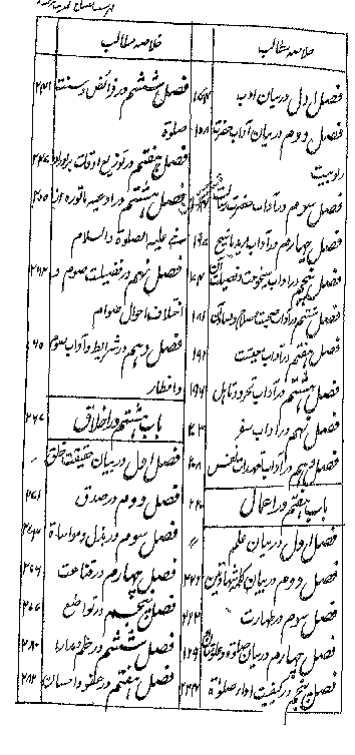 خلاصه مطالب
فصل اول در بیان ادب
فصل دوم در بیان آداب حضرت
ربوبیت
فصل سوم در آداب حضرت رسالت
فصل چهارم در آداب مرید با شیخ
فصل پنجم در آداب شیخوخت و فضیلت آن
فصل ششم در آداب صحبت
فصل هفتم در آداب معیشت
فصل هشتم در آداب تجرد و تاهل
فصل نهم در آداب سفر
فصل دهم در آداب تعهدات نفس
باب هفتم در اعمال
فصل اول در بیان علم
فصل دوم در بیان کلمه شهادتین
فصل سوم در طهارت
فصل چهارم در بیان صلوٰة و علو شان
فصل پنجم در کیفیت اداء صلوٰة ۲۳۴
خلاصه مطالب
فصل ششم در فرائض و سنت ۲۴۱
صلوٰة
فصل هفتم در توزیع اوقات بر اوراد
فصل هشتم در ادعیه ماثوره از ۲۵۵
علیه الصلوٰة والسلام
فصل نهم در فضیلت صوم و
اختلاف احوال صوام
فصل دهم در شرایط و آداب صوم
و افطار
باب هشتم در اخلاق
فصل اول در بیان حقیقت خلق
فصل دوم در صدق
فصل سوم در بذل و مواساة
فصل چهارم در قناعت
فصل پنجم در تواضع
فصل ششم در حلم و مدارا ۲۸۰
فصل هفتم در عفو و احسان